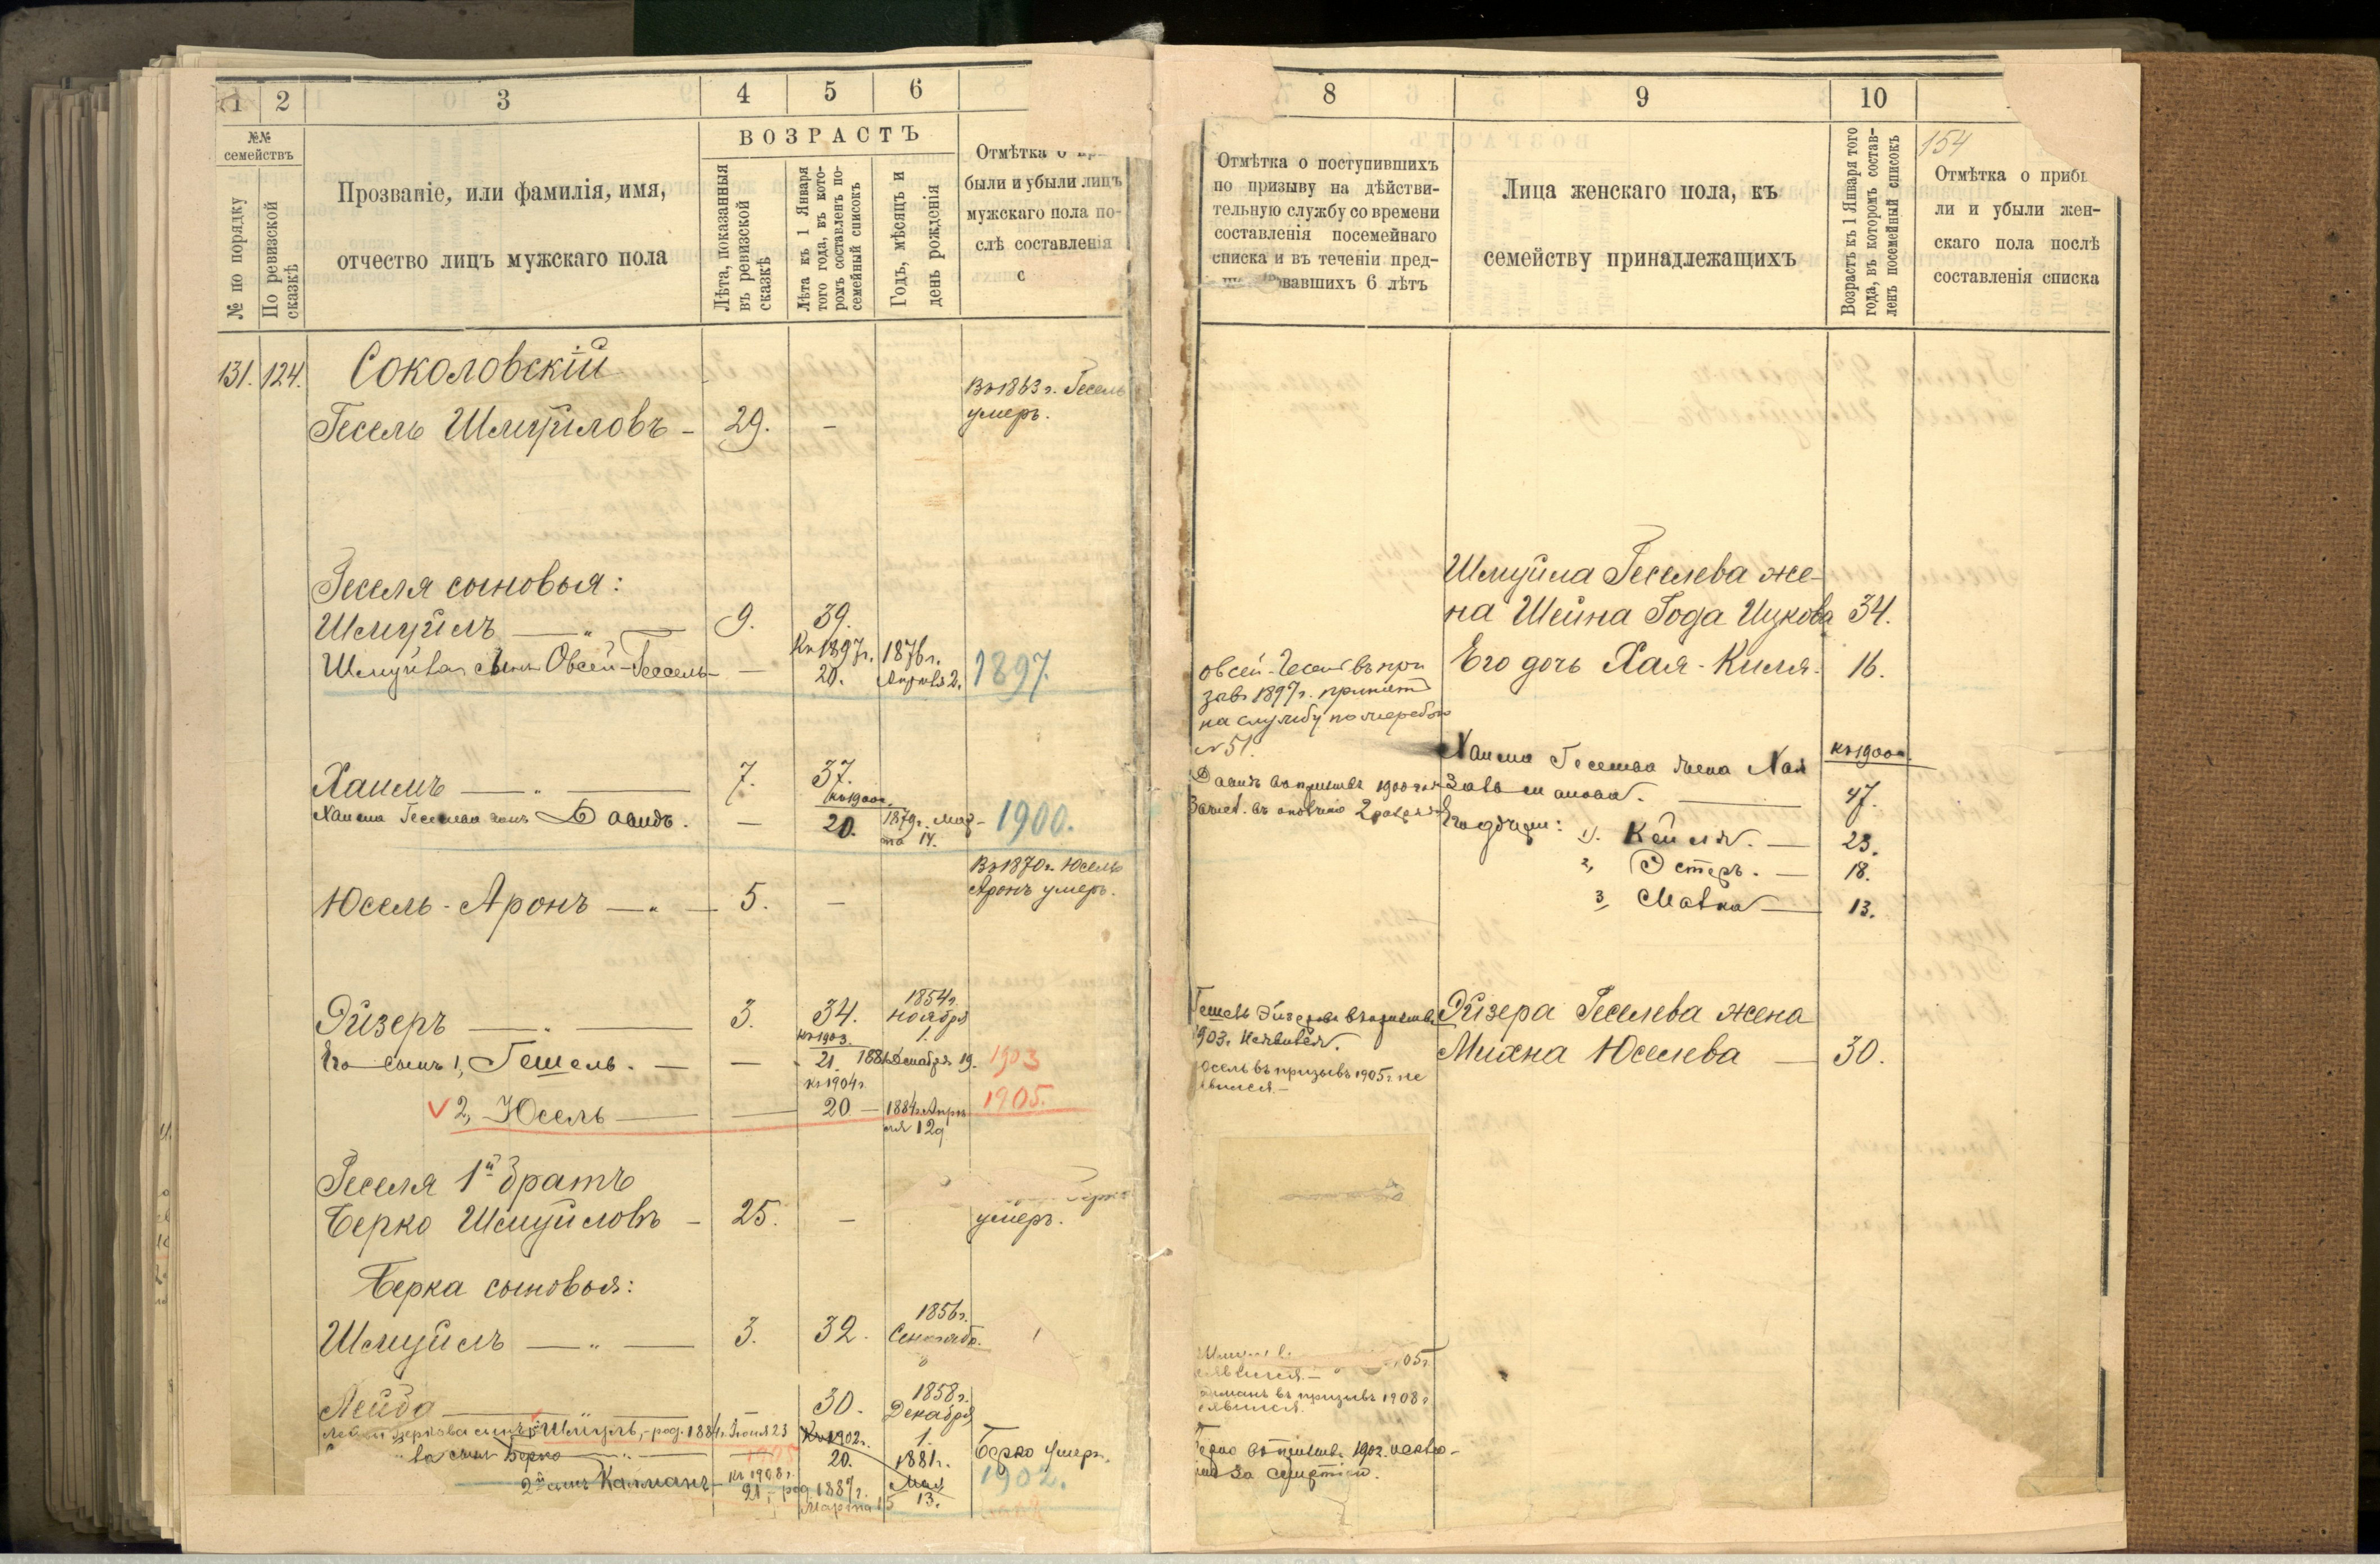 1 2 3 4 5 6
№№ семействъ
№ по порядку
По ревизской сказкѣ
Прозваніе, или фамилія, имя,
отчество лицъ мужскаго пола
ВОЗРАСТЪ
Лѣта, показанныя
въ ревизской
сказкѣ
Лѣта къ 1 Января
того года, въ кото-
ромъ составленъ по-
семейный списокъ
Годъ, мѣсяцъ и
день рожденія
Отмѣтка о
были и убыли лицъ
мужскаго пола по-
слѣ составленія
с
131. 124. Соколовскій
Гесель Шмуйловъ - 29. -
Въ 1863 г. Гесель
умеръ.
Геселя сыновья:
Шмуйлъ — " — 9. 39.
Къ 1897 г. 1876 г.
Шмуйла сынъ Овсей-Гессель - — 20. Апрѣля 2. 1897.
Хаимъ — " — 7. 37.
къ 1900 г.
Хаима Геселева сынъ Давидъ. — 20. 1879 г. Мар-
та 14. 1900.
Въ 1870 г. Юсель
Аронъ умеръ.
Юсель-Аронъ — " — 5. -
1854 г.
Эйзеръ — " — 3. 34. Ноября
1.
къ 1903.
Его сынъ 1, Гешель. — — 21. 1881 Декабря 19. 1903
къ 1904 г.
2, Юсель — — 20 — 1884 г. Апрѣ-
ля 12д 1905.
Геселя 1й братъ
Берко Шмуйловъ - 25. - умеръ.
Берка сыновья:
1856 г.
Шмуйлъ — " — 3. 32. Сентяб.
1858 г.
Лейба — 30. Декабря
1.
Беркова сынъ Шмуль, - род. 1884 г. Іюня 23
Къ 1902 г.
ва сынъ Берко — " — 1905 20. 1881 г. Берко умеръ.
Мая
13. 1902.
2й сынъ Калманъ - къ 1908 г.
21, - род 1887 г.
Марта 15
8 9 10
154
Отмѣтка о поступившихъ
по призыву на дѣйстви-
тельную службу со времени
составленія посемейнаго
списка и въ теченіи пред-
вавшихъ 6 лѣтъ
Лица женскаго пола, къ
семейству принадлежащихъ
Возрастъ къ 1 Января того
года, въ которомъ состав-
ленъ посемейный списокъ
Отмѣтка о прибы
ли и убыли жен-
скаго пола послѣ
составленія списка
Шмуйла Геселева же-
на Шейна Года Ицкова 34.
Его дочь Хая-Киля. 16.
Овсей-Гесель въ при
зывъ 1897 г. принятъ
на службу по жеребью
№ 51.
Хаима Геселева жена Хая къ 1900 г.
47.
Давидъ въ призывъ 1900 года
Зачисл. въ ополченіе 2 разряда
Его дочери: 1). Кейля. — 23.
2, Эстеръ. — 18.
3, Мавка — 13.
Гешель Эйзеровъ въ призывъ
903 г. неявился.
Эйзера Геселева жена
Михна Юселева — 30.
осель въ призывъ 1905 г. не
явился. —
05 г.
явился. —
алманъ въ призывъ 1908 г.
явился.
Берко въ призывъ 1902. неяв
за смертію.